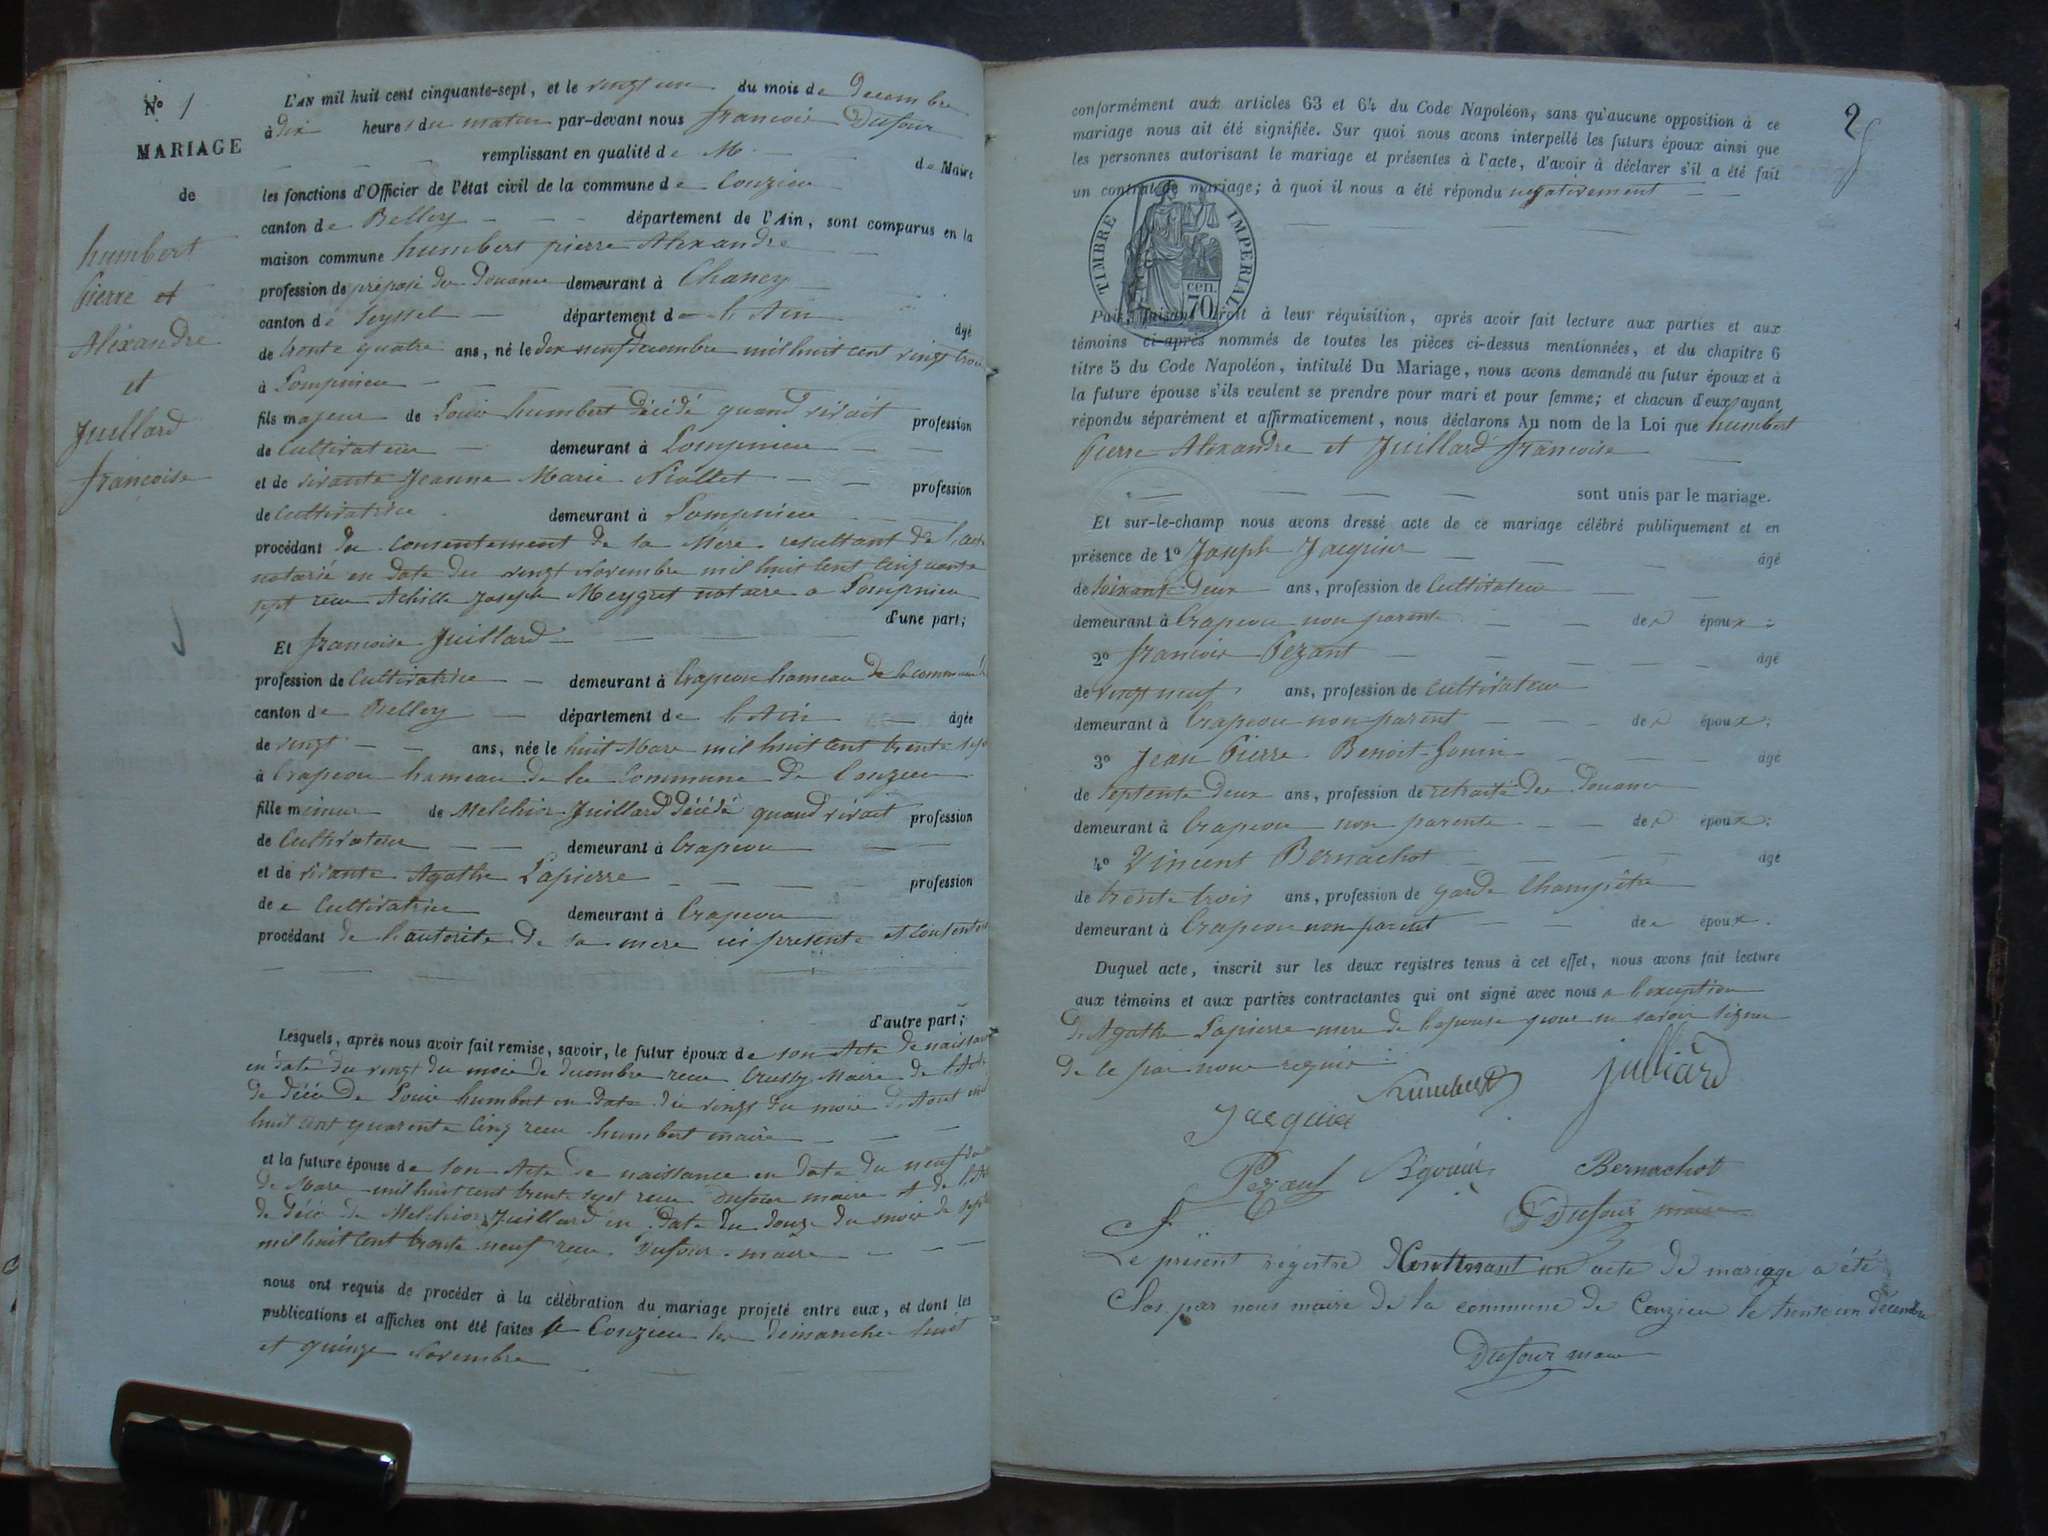 No 1
MARIAGE
de
humbert
Pierre et
Alexandre
et
Juillard
francoise
L'AN mil huit cent cinquante-sept, et le vingt un du mois de Decembre
à dix heures du matin par-devant nous francois Dufour
remplissant en qualité de M de Maire
les fonctions d'Officier de l'état civil de la commune de Conzieu
canton de Belley département de l'Ain, sont comparus en la
maison commune humbert pierre Alexandre
profession de préposé des Douanes demeurant à Chanay
canton de Seyssel département de l'Ain âgé
de trente quatre ans, né le dix neuf decembre mil huit cent vingt trois
à Lompnieu
fils majeur de Louis humbert décédé quand vivait profession
de Cultivateur demeurant à Lompnieu
et de vivante Jeanne Marie profession
de Cultivatrice demeurant à Lompnieu
procédant du consentement de sa Mère resultant de l'acte
notarié en date du vingt Novembre mil huit cent cinquante
sept recu Achille Joseph Meygret notaire a Lompnieu
d'une part;
Et francoise Juillard
profession de Cultivatrice demeurant à Crapeou hameau de la commune
canton de Belley département de l'Ain âgée
de vingt ans, née le huit Mars mil huit cent trente sept
à Crapeou hameau de la Commune de Conzieu
fille mineur de Melchior Juillard décédé quand vivait profession
de Cultivateur demeurant à Crapeou
et de vivante Agathe Lapierre profession
de Cultivatrice demeurant à Crapeou
procédant de l'autorite de sa mere ici presente et consentante
d'autre part;
Lesquels, après nous avoir fait remise, savoir, le futur époux de son Acte de naissance
en date du vingt du mois de decembre recu Crussy Maire de l'Acte
de décé de Louis humbert en date du vingt du mois d'Aout mil
huit cent quarente cinq recu humbert maire
et la future épouse de son Acte de naissance en date du neuf du
de Mars mil huit cent trente sept recu Dufour maire et de l'Acte
de décé de Melchior Juillard en date du douze du mois de septbre
mil huit cent trente neuf recu Dufour maire
nous ont requis de procéder à la célébration du mariage projeté entre eux, et dont les
publications et affiches ont été faites a Conzieu les dimanches huit
et quinze Novembre
2
conformément aux articles 63 et 64 du Code Napoléon, sans qu'aucune opposition à ce
mariage nous ait été signifiée. Sur quoi nous avons interpellé les futurs époux ainsi que
les personnes autorisant le mariage et présentes à l'acte, d'avoir à déclarer s'il a été fait
un contrat de mariage; à quoi il nous a été répondu negativement
TIMBRE IMPERIAL
70 cen.
Puis, faisant droit à leur réquisition, après avoir fait lecture aux parties et aux
témoins ci-après nommés de toutes les pièces ci-dessus mentionnées, et du chapitre 6
titre 5 du Code Napoléon, intitulé Du Mariage, nous avons demandé au futur époux et à
la future épouse s'ils veulent se prendre pour mari et pour femme; et chacun d'eux ayant
répondu séparément et affirmativement, nous déclarons Au nom de la Loi que humbert
Pierre Alexandre et Juillard francoise
sont unis par le mariage.
Et sur-le-champ nous avons dressé acte de ce mariage célébré publiquement et en
présence de 1o Joseph Jacquier âgé
de soixante deux ans, profession de Cultivateur
demeurant à Crapeou non parent des époux;
2o francois Pezant âgé
de vingt neuf ans, profession de Cultivateur
demeurant à Crapeou non parent des époux;
3o Jean Pierre Benoit Gonin âgé
de septente deux ans, profession de retraité des Douanes
demeurant à Crapeou non parent des époux;
4o Vincent Bernachot âgé
de trente trois ans, profession de garde Champêtre
demeurant à Crapeou non parent des époux.
Duquel acte, inscrit sur les deux registres tenus à cet effet, nous avons fait lecture
aux témoins et aux parties contractantes qui ont signé avec nous a l'exception
de Agathe Lapierre mere de l'epouse pour ne savoir signer
de ce par nous requis
humbert julliard
Jacquier
Pezant Bernachot
Dufour maire
Le présent régistre Conttenant un acte de mariage a été
Clos par nous maire de la commune de Conzieu le trente un décembre
Dufour maire